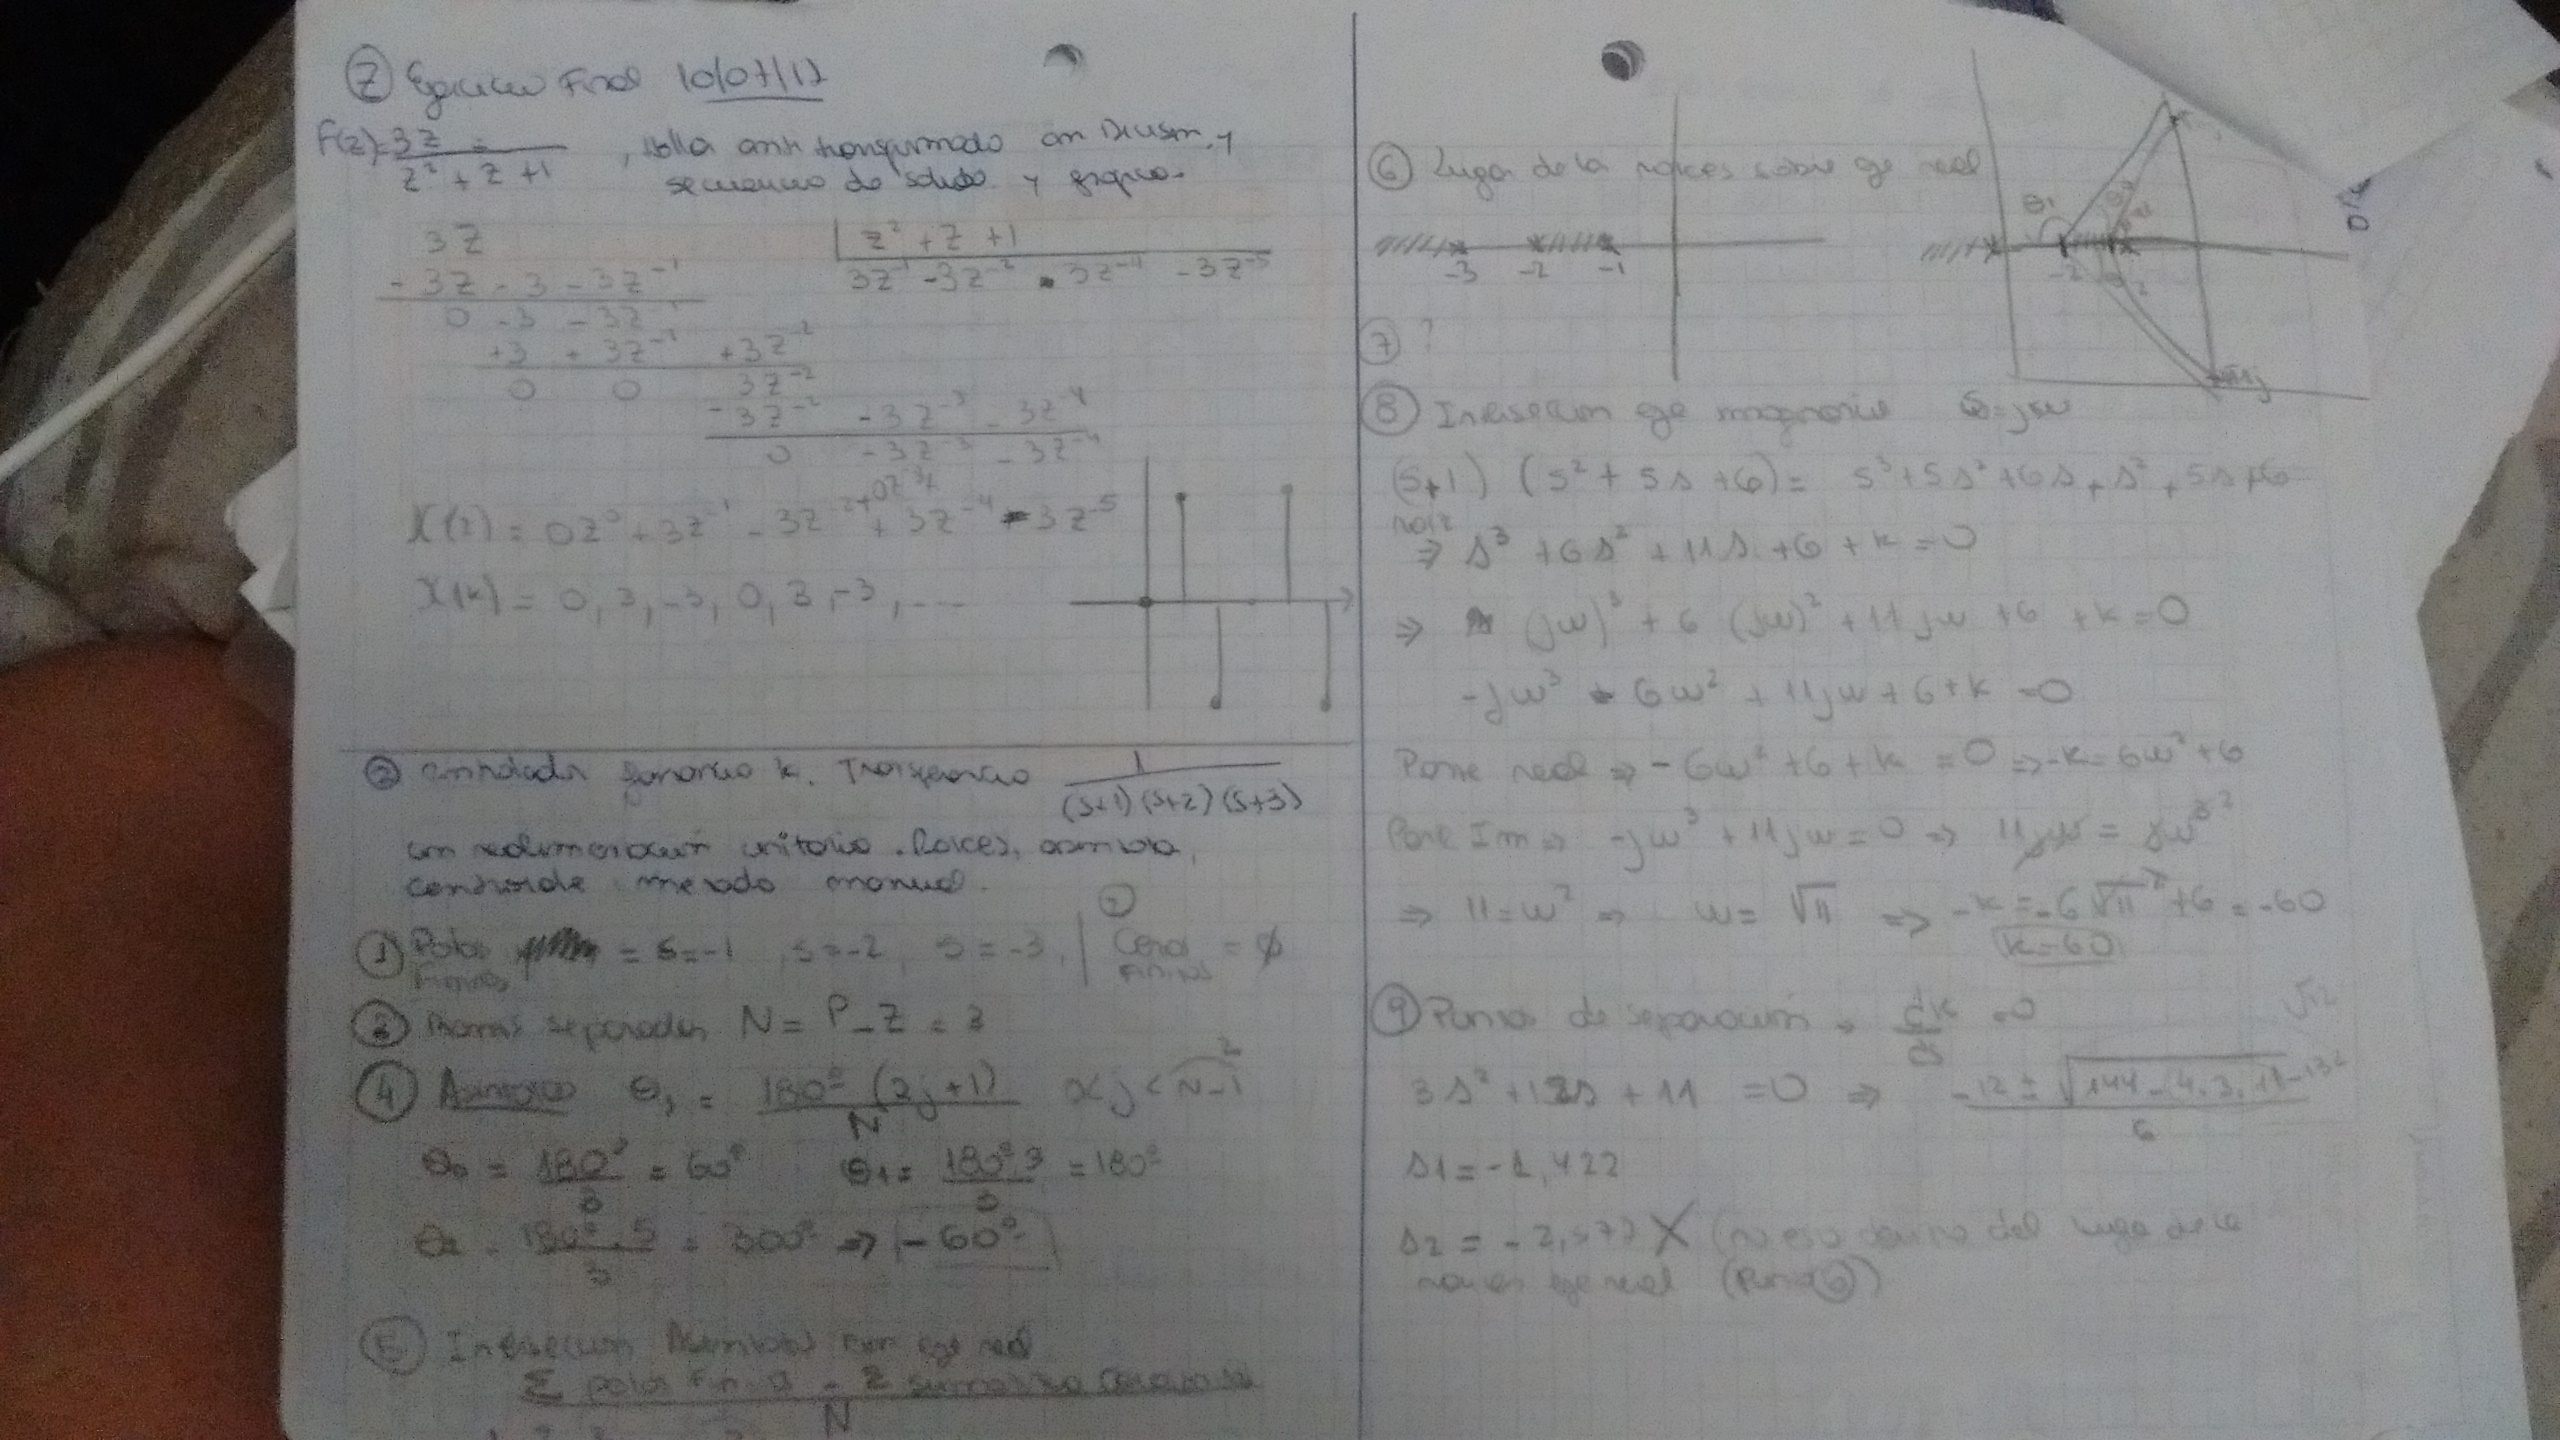 ② Ejercicio Final 10/07/17
F(z)= 3z / z² + z + 1 , Halla anti transformada con División, y
secuencia de salida y grafica.
3z | z² + z + 1
- 3z - 3 - 3z⁻¹ 3z⁻¹ - 3z⁻² 3z⁻⁴ - 3z⁻⁵
0 - 3 - 3z⁻¹
+3 + 3z⁻¹ + 3z⁻²
0 0 3z⁻²
- 3z⁻² - 3z⁻³ - 3z⁻⁴
0 - 3z⁻³ - 3z⁻⁴
X(z) = 0z⁰ + 3z⁻¹ - 3z⁻² + 0z⁻³ + 3z⁻⁴ - 3z⁻⁵
X(k) = 0, 3, -3, 0, 3, -3, ....
② k. Transferencia 1 / (s+1)(s+2)(s+3)
con realimentación unitaria. Raíces,
metodo manual.
① Polos Finitos = s=-1, s=-2, s=-3, | ② Ceros Finitos = ∅
③ Ramas separadas N = P - Z = 3
④ Asintotas θj = 180° (2j+1) / N j < N-1 2
θ0 = 180° / 3 = 60° θ1 = 180°.3 / 3 = 180°
θ2 = 180°.5 / 3 = 300° ⇒ -60°
5 Interseccion Asintotas con eje real
Σ polos Fin / N
⑥ Lugar de la raices sobre eje real
-3 -2 -1
θ1 -2 θ2
⑦ ?
⑧ Interseccion eje imaginario s=jw
(s+1) (s² + 5s + 6) = s³ + 5s² + 6s + s² + 5s + 6
⇒ s³ + 6s² + 11s + 6 + k = 0
⇒ (jw)³ + 6 (jw)² + 11jw + 6 + k = 0
-jw³ - 6w² + 11jw + 6 + k = 0
Parte real ⇒ -6w² + 6 + k = 0 ⇒ -k = 6w² + 6
Parte Im ⇒ -jw³ + 11jw = 0 ⇒ 11jw = jw³ ²
⇒ 11 = w² ⇒ w = √11 ⇒ -k = -6√11² + 6 = -60
k=60
⑨ Puntos de separación ⇒ dk/ds = 0
3s² + 12s + 11 = 0 ⇒ -12 ± √144 - (4.3.11 -132 / 6
s1 = -1,422
s2 = -2,577 X (no esta dentro del lugar de la
raices eje real (Punto ⑥)